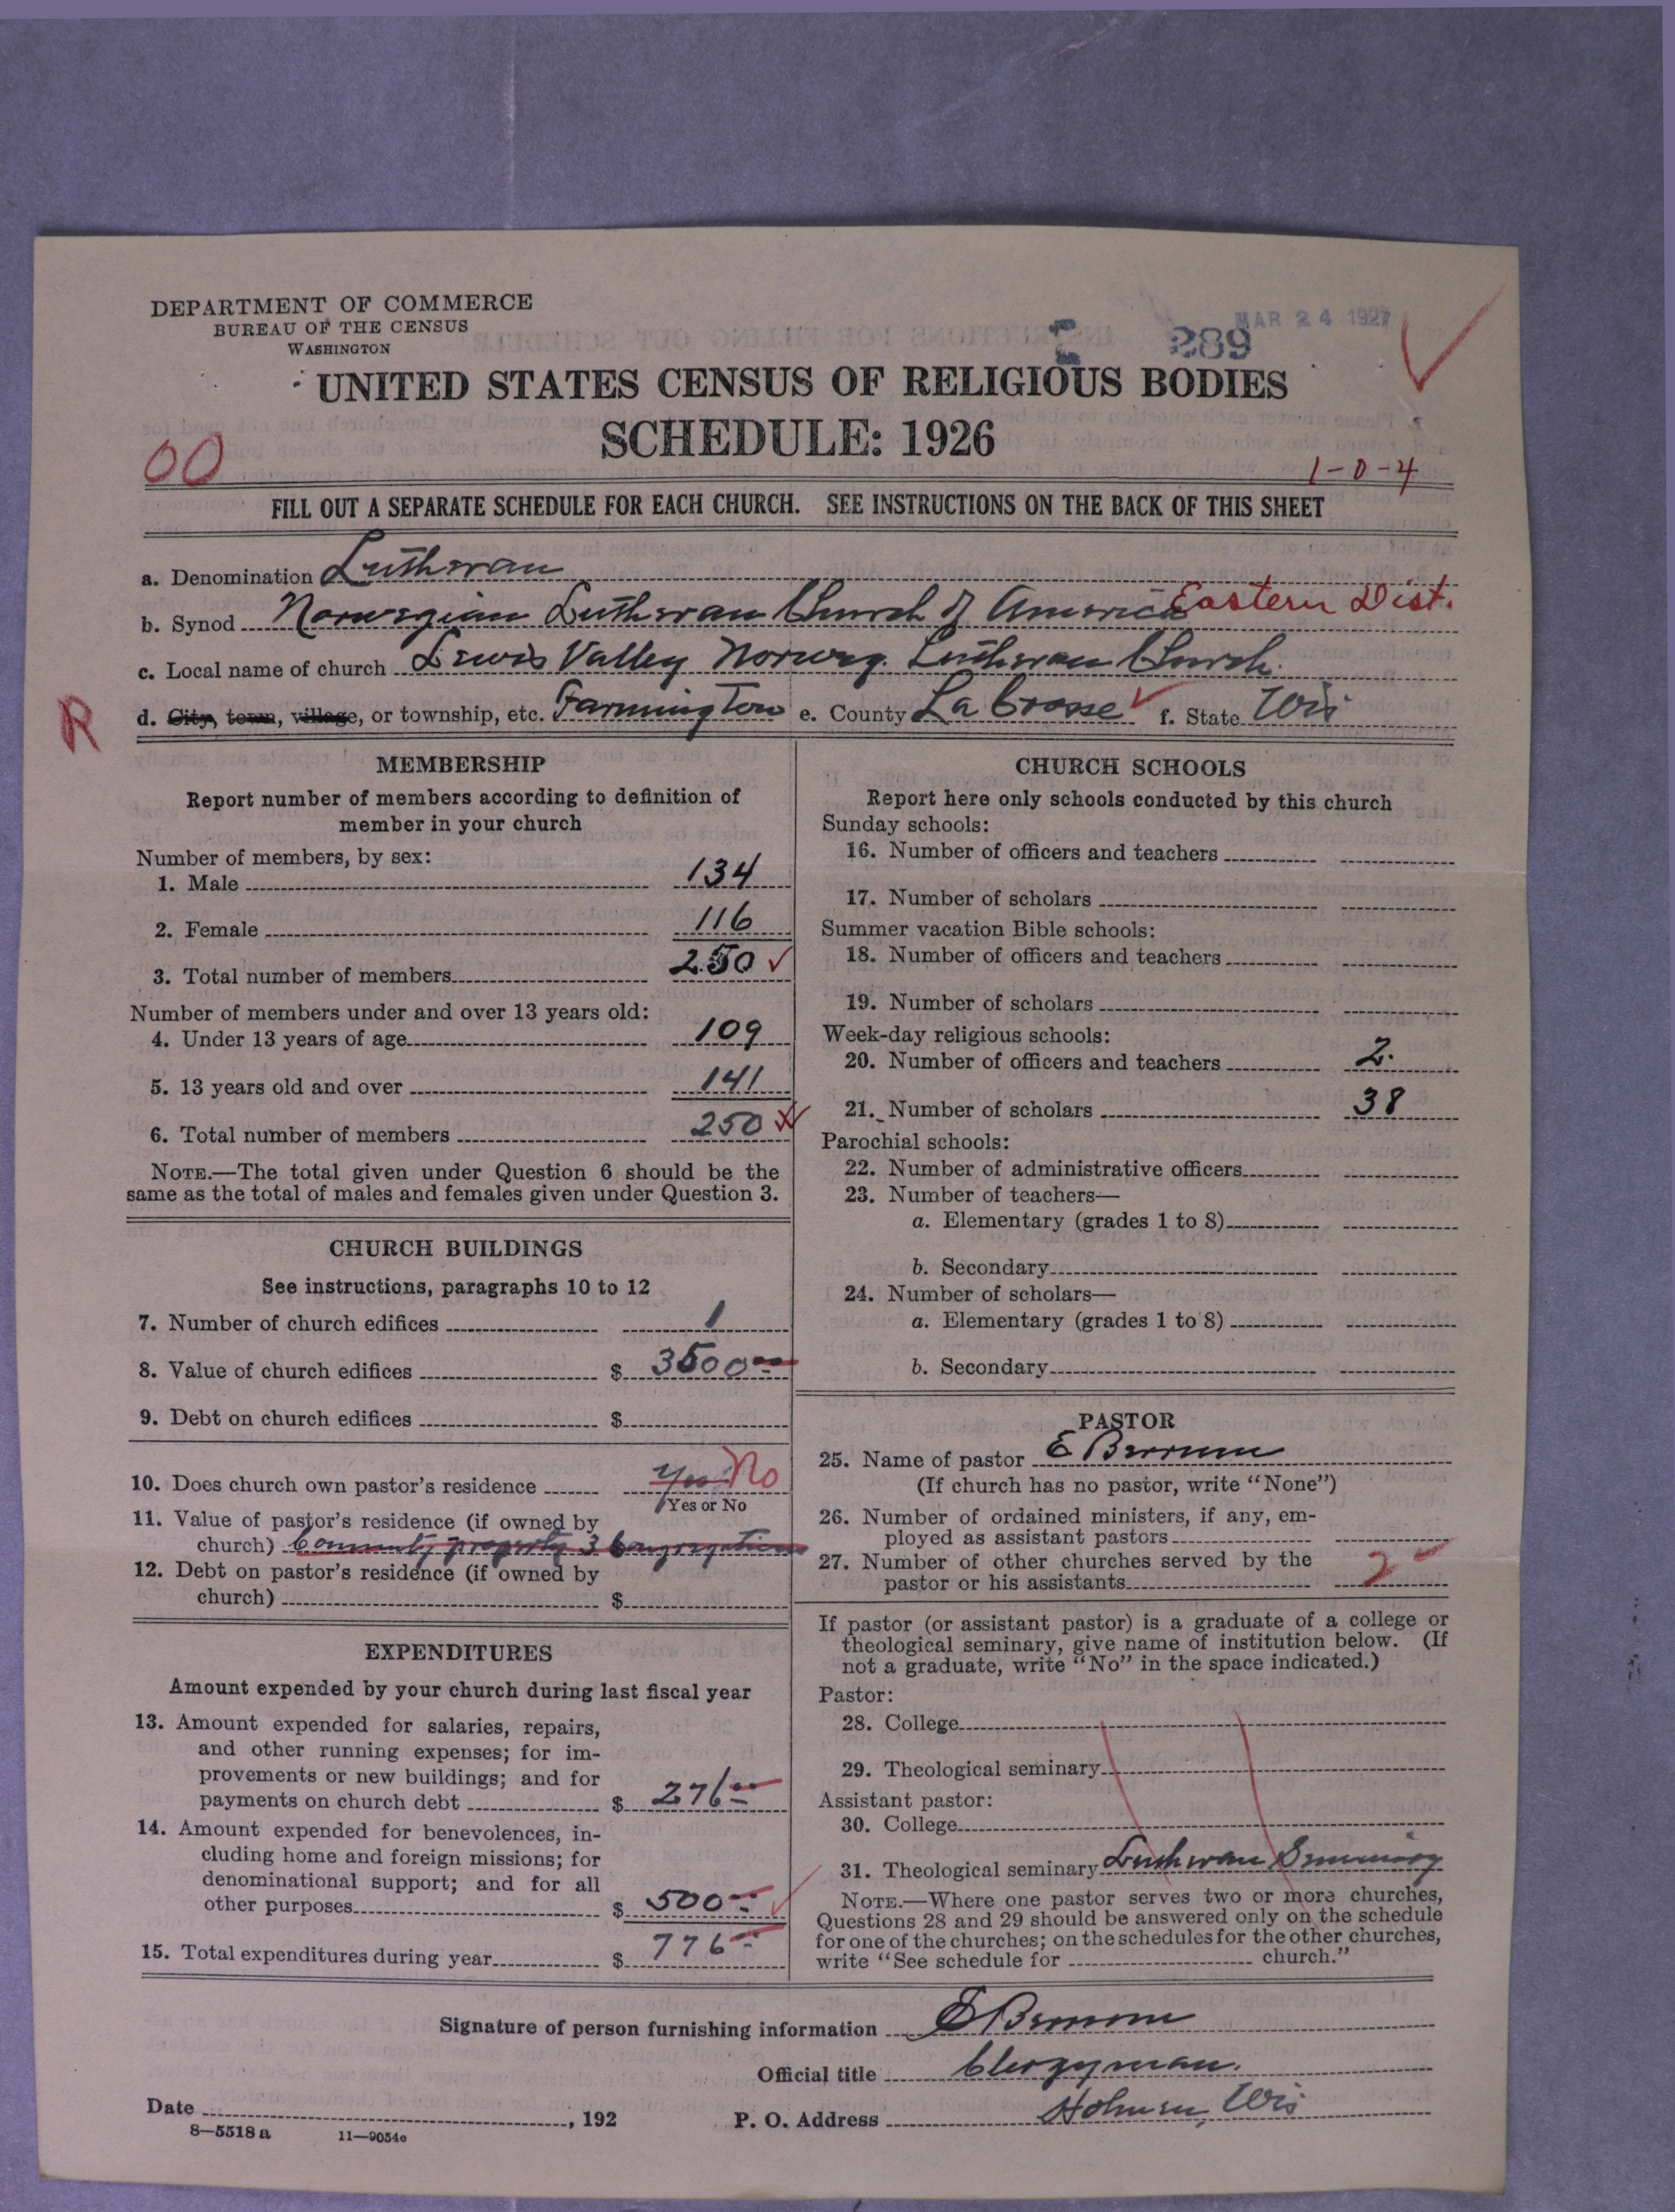 DEPARTMENT OF COMMERCE
BUREAU OF THE CENSUS
WASHINGTON
MAR 24 1927
289
UNITED STATES CENSUS OF RELIGIOUS BODIES
SCHEDULE: 1926
00
1-0-4
FILL OUT A SEPARATE SCHEDULE FOR EACH CHURCH. SEE INSTRUCTIONS ON THE BACK OF THIS SHEET
a. Denomination Lutheran
b. Synod Norwegian Lutheran Church of America Eastern Dist.
c. Local name of church Lewis Valley Norweg. Lutheran Church.
R
d. City, town, village, or township, etc. Farmington e. County La Crosse f. State Wis
MEMBERSHIP
Report number of members according to definition of
member in your church
Number of members, by sex:
1. Male 134
2. Female 116
3. Total number of members 250
Number of members under and over 13 years old:
4. Under 13 years of age 109
5. 13 years old and over 141
6. Total number of members 250
NOTE.—The total given under Question 6 should be the
same as the total of males and females given under Question 3.
CHURCH BUILDINGS
See instructions, paragraphs 10 to 12
7. Number of church edifices 1
8. Value of church edifices $ 3500
9. Debt on church edifices $
10. Does church own pastor's residence Yes No
Yes or No
11. Value of pastor's residence (if owned by
church) Community property 3 Congregations
12. Debt on pastor's residence (if owned by
church) $
EXPENDITURES
Amount expended by your church during last fiscal year
13. Amount expended for salaries, repairs,
and other running expenses; for im-
provements or new buildings; and for
payments on church debt $ 276
14. Amount expended for benevolences, in-
cluding home and foreign missions; for
denominational support; and for all
other purposes $ 500
15. Total expenditures during year $ 776
CHURCH SCHOOLS
Report here only schools conducted by this church
Sunday schools:
16. Number of officers and teachers
17. Number of scholars
Summer vacation Bible schools:
18. Number of officers and teachers
19. Number of scholars
Week-day religious schools:
20. Number of officers and teachers 2.
21. Number of scholars 38
Parochial schools:
22. Number of administrative officers
23. Number of teachers—
a. Elementary (grades 1 to 8)
b. Secondary
24. Number of scholars—
a. Elementary (grades 1 to 8)
b. Secondary
PASTOR
25. Name of pastor E
(If church has no pastor, write "None")
26. Number of ordained ministers, if any, em-
ployed as assistant pastors
27. Number of other churches served by the
pastor or his assistants 2
If pastor (or assistant pastor) is a graduate of a college or
theological seminary, give name of institution below. (If
not a graduate, write "No" in the space indicated.)
Pastor:
28. College
29. Theological seminary
Assistant pastor:
30. College
31. Theological seminary Lutheran Seminary
NOTE.—Where one pastor serves two or more churches,
Questions 28 and 29 should be answered only on the schedule
for one of the churches; on the schedules for the other churches,
write "See schedule for church."
Signature of person furnishing information E
Official title Clergyman.
Date , 192
P. O. Address Holmen, Wis
8—5518 a 11—9054c